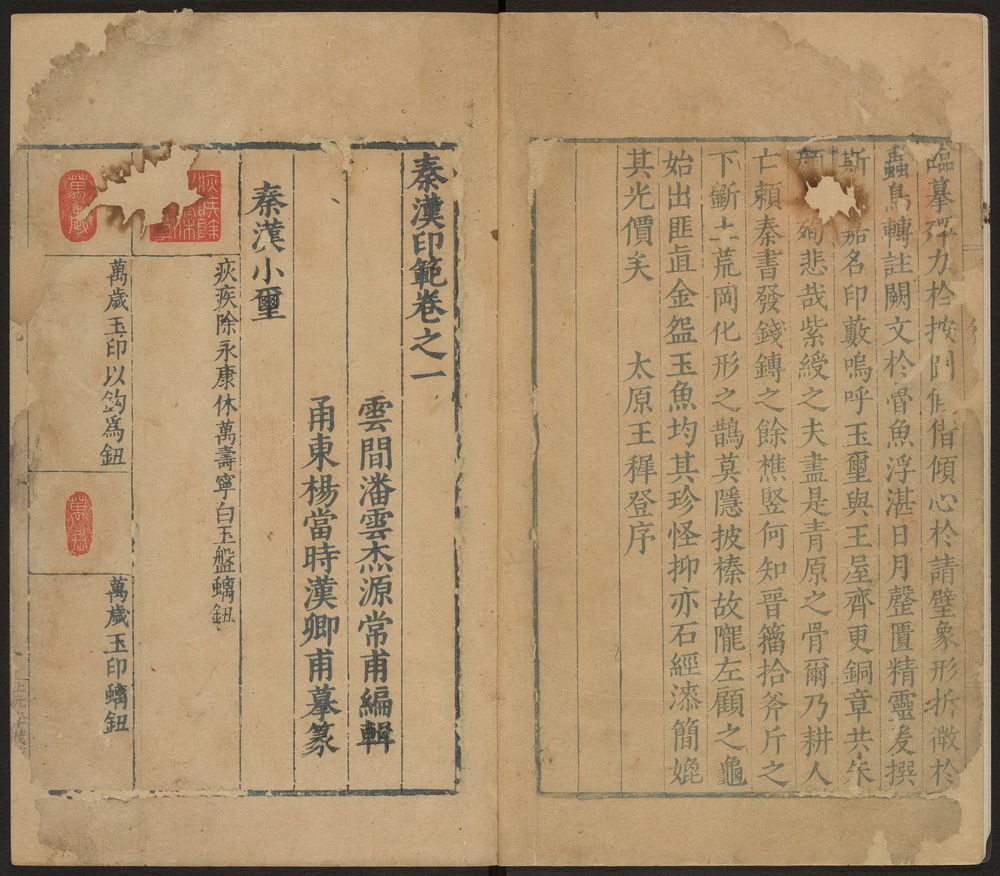 臨摹殫力於按圖假借傾心於請璧象形折微於
蟲鳥轉註闕文於骨魚浮湛日月罄匱精靈爰撰
斯 名印藪嗚呼玉璽與王屋齊更銅章共
殉悲哉紫綬之夫盡是青原之骨爾乃耕人
亡賴秦書發錢鎛之餘樵豎何知晉籀拾斧斤之
下斸土荒岡化形之鵲莫隱披榛故隴左顧之龜
始出匪直金盌玉魚均其珍怪抑亦石經漆簡媲
其光價矣 太原王穉登序
秦漢印範卷之一
雲間潘雲杰源常甫編輯
甬東楊當時漢卿甫摹篆
秦漢小璽
疢疾除永康休萬壽寧白玉盤螭鈕
萬歲
萬歲玉印以鈎爲鈕
萬歲
萬歲玉印螭鈕